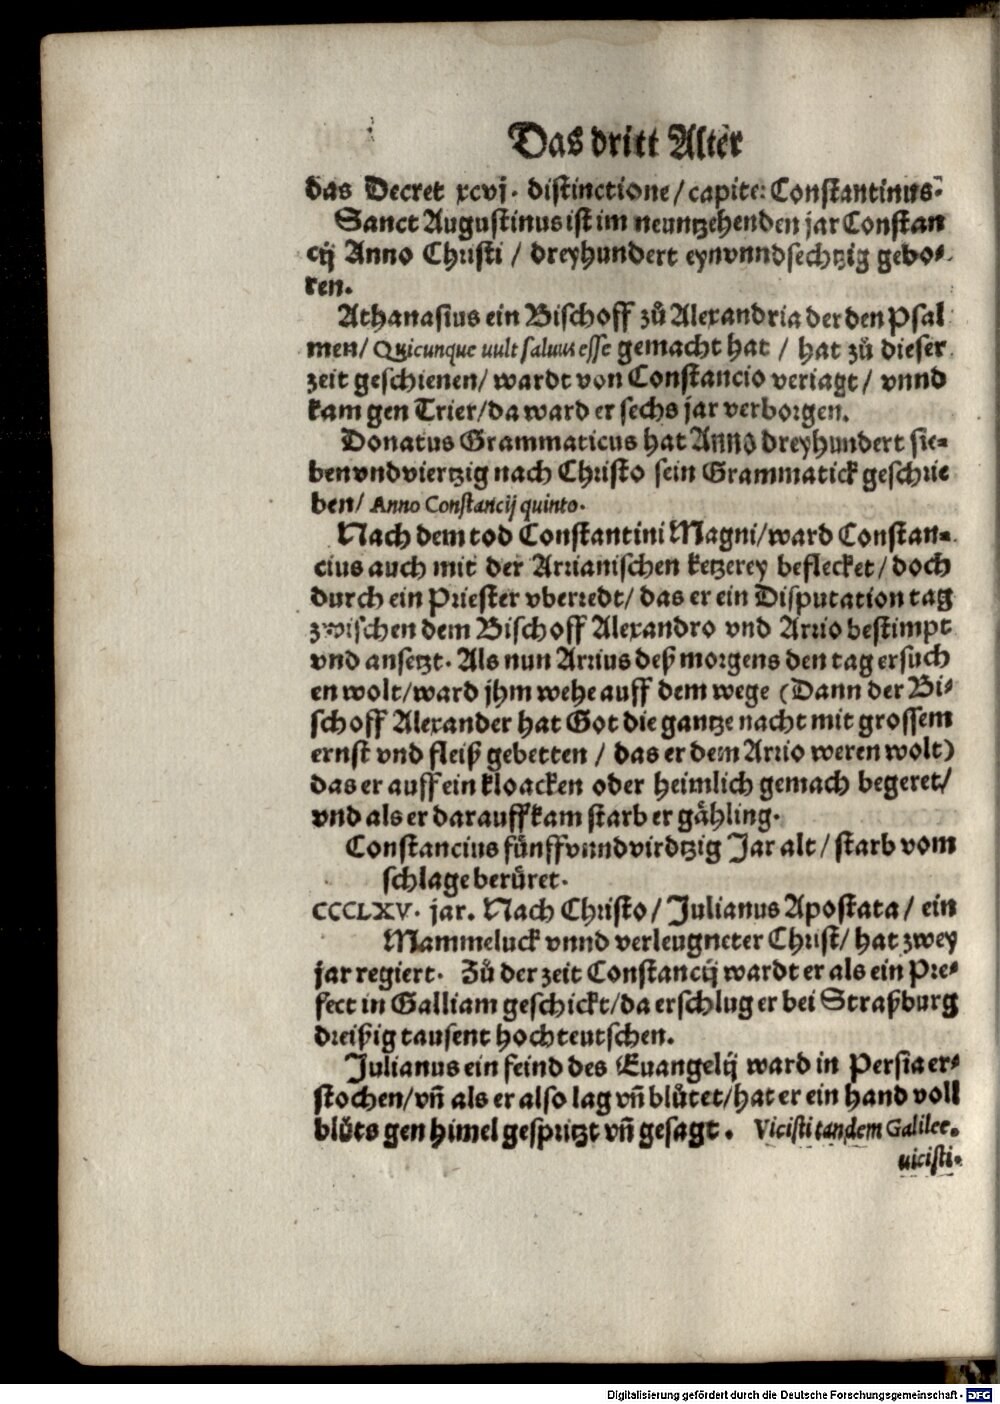 Das dritt Alter
das Decret xcvj. distinctione/capite: Constantinus.
Sanct Augustinus ist im neuntzehenden jar Constan
cij Anno Christi / dreyhundert eynvnndsechtzig gebo-
ren.
Athanasius ein Bischoff zů Alexandria der den Psal
men/ Quicunque uult saluus esse gemacht hat / hat zů dieser
zeit geschienen/ wardt von Constancio veriagt / vnnd
kam gen Trier/da ward er sechs jar verborgen.
Donatus Grammaticus hat Anno dreyhundert sie-
benvndviertzig nach Christo sein Grammatick geschrie
ben/ Anno Constancij quinto.
Nach dem tod Constantini Magni/ward Constan-
cius auch mit der Arrianischen ketzerey beflecket/ doch
durch ein Priester vberredt/ das er ein Disputation tag
zwischen dem Bischoff Alexandro vnd Arrio bestimpt
vnd ansetzt. Als nun Arrius deß morgens den tag ersuch
en wolt/ward jhm wehe auff dem wege (Dann der Bi-
schoff Alexander hat Got die gantze nacht mit grossem
ernst vnd fleiß gebetten / das er dem Arrio weren wolt)
das er auff ein kloacken oder heimlich gemach begeret/
vnd als er darauff kam starb er gåhling.
Constancius fünffvnndvirdtzig Jar alt / starb vom
schlage berüret.
CCCLXV. jar. Nach Christo/ Julianus Apostata/ ein
Mammeluck vnnd verleugneter Christ/ hat zwey
jar regiert. Zů der zeit Constancij wardt er als ein Pre-
fect in Galliam geschickt/da erschlug er bei Straßburg
dreißig tausent hochteutschen.
Julianus ein feind des Euangelij ward in Persia er-
stochen/vñ als er also lag vñ blůtet/hat er ein hand voll
blůts gen himel gespritzt vñ gesagt. Vicisti tandem Galilee.
uicisti.
Digitalisierung gefördert durch die Deutsche Forschungsgemeinschaft - DFG